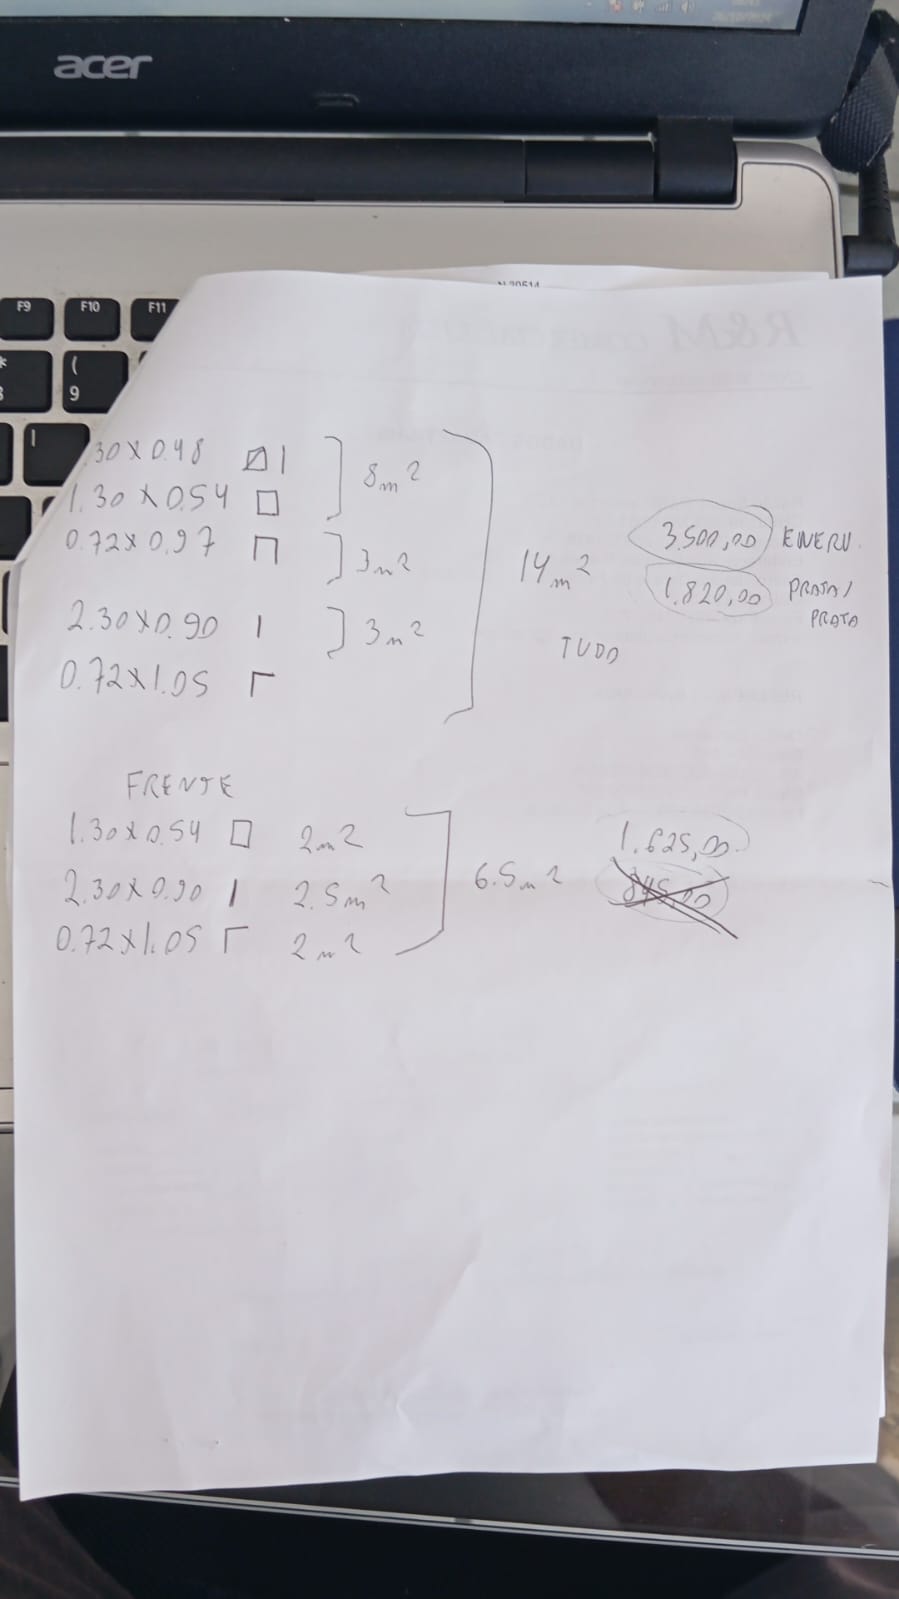 acer
F9
F10
F11
(
9
.30 x 0.48
1.30 x 0.54
8m²
0.72 x 0.97
3m²
2.30 x 0.90
3m²
0.72 x 1.05
14m²
TUDO
3.500,00
1.820,00 PRATA/
PRATA
FRENTE
1.30 x 0.54 2m²
2.30 x 0.90 2.5m²
0.72 x 1.05 2m²
6.5m²
1.625,00
845,00